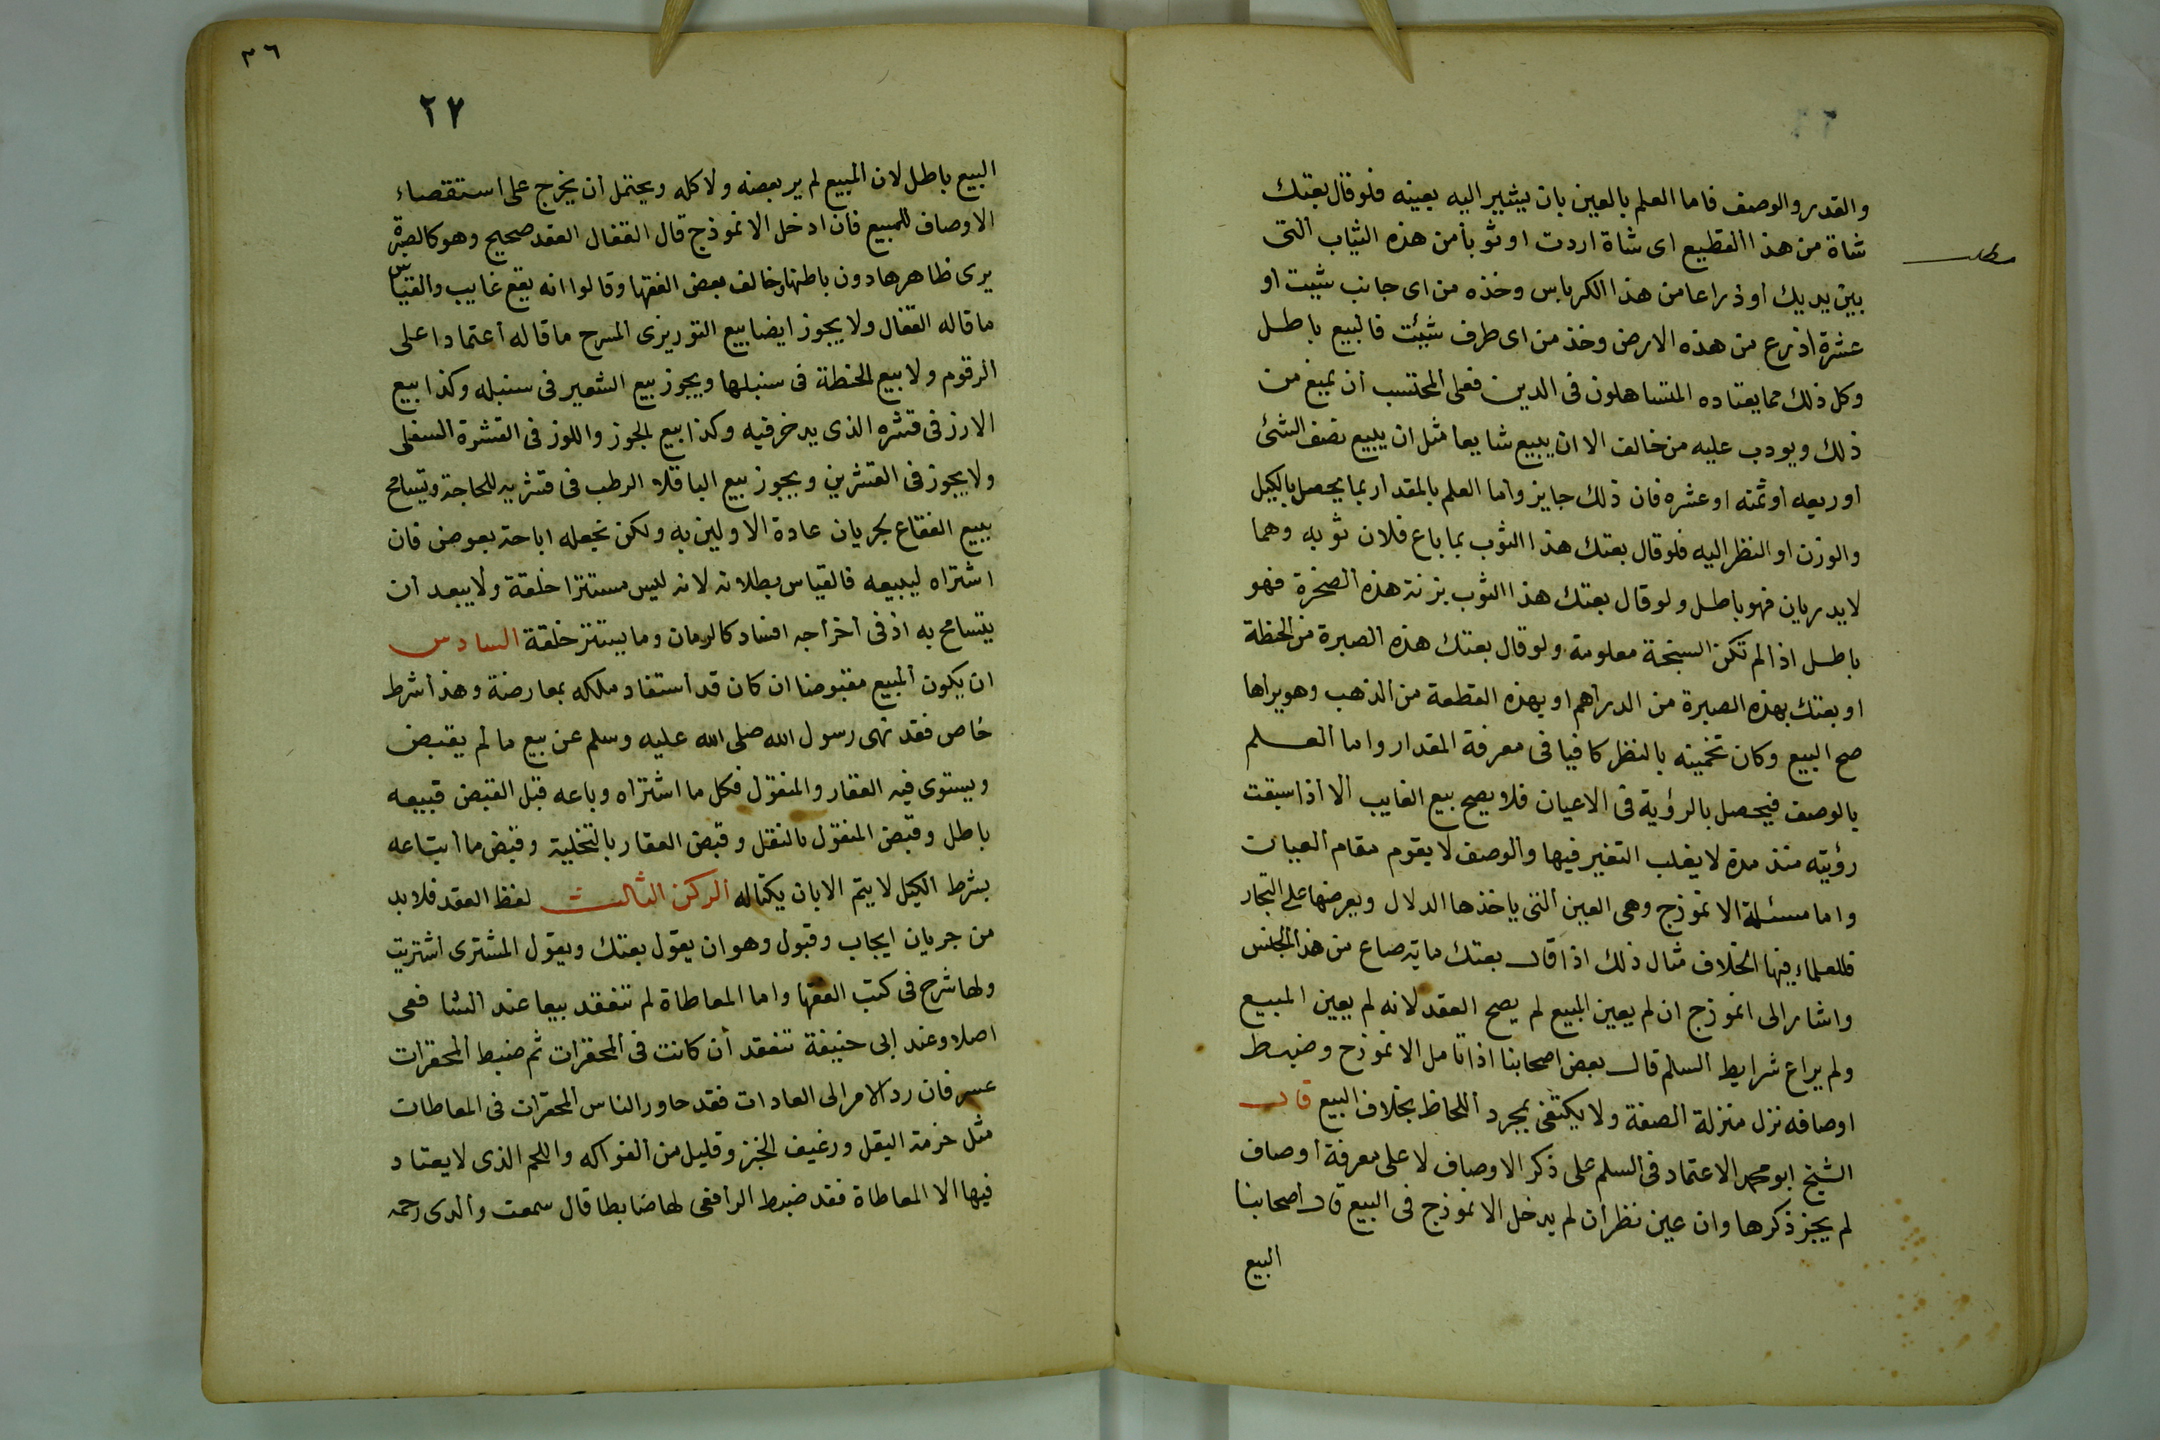 والقدر والوصف فاما العلم بالعين بان يشير اليه بعينه فلو قال بعتك
شاة من هذا القطيع اى شاة اردت او ثوبا من هذه الثياب التى
مطلب
بين يديك او ذراعا من هذا الكرباس وخذه من اى جانب شيت او
عشرة اذرع من هذه الارض وخذ من اى طرف شيئت فالبيع باطل
وكل ذلك مما يعتاده المتساهلون فى الدين فعلى المحتسب ان يمنع من
ذلك ويودب عليه من خالف الا ان يبيع شايعا مثل ان يبيع نصف الشئ
او ربعه او ثمنه او عشره فان ذلك جايز واما العلم بالمقدار بما يحصل بالكيل
والوزن او النظر اليه فلو قال بعتك هذا الثوب بما باع فلان ثوبه وهما
لا يدريان فهو باطل ولو قال بعتك هذا الثوب بزنة هذه الصخرة فهو
باطل اذا لم تكن السنجة معلومة ولو قال بعتك هذه الصبرة من الحنطة
او بعتك بهذه الصبرة من الدراهم او بهذه القطعة من الذهب وهو يراها
صح البيع وكان تخمينه بالنظر كافيا فى معرفة المقدار واما العلم
بالوصف فيحصل بالرؤية فى الاعيان فلا يصح بيع الغايب الا اذا سبقت
رؤيته منذ مدة لا يغلب التغير فيها والوصف لا يقوم مقام العيان
واما مسئلة الانموذج وهى العين التى ياخذها الدلال ويعرضها على التجار
فللعلماء فيها اختلاف مثال ذلك اذا قال بعتك ماية صاع من هذا الجنس
واشار الى انموذج ان لم يعين المبيع لم يصح العقد لانه لم يعين المبيع
ولم يراع شرايط السلم قال بعض اصحابنا اذا تامل الانموذج وضبط
اوصافه نزل منزلة الصفة ولا يكتفى بمجرد اللحاظ بخلاف البيع قال
الشيخ ابو محمد الاعتماد فى السلم على ذكر الاوصاف لا على معرفة اوصاف
لم يجز ذكرها وان عين نظر ان لم يدخل الانموذج فى البيع قال اصحابنا
البيع
٣٦
٢٧
البيع باطل لان المبيع لم ير بعضه ولا كله ويحتمل ان يخرج على استقصاء
الاوصاف للمبيع فان ادخل الانموذج قال القفال العقد صحيح وهو كالصبرة
يرى ظاهرها دون باطنها وخالف بعض الفقها وقالوا انه بيع غايب والقياس
ما قاله القفال ولا يجوز ايضا بيع التوريزى المسرح ما قاله اعتمادا على
الرقوم ولا بيع الحنطة فى سنبلها ويجوز بيع الشعير فى سنبله وكذا بيع
الارز فى قشره الذى يدخر فيه وكذا بيع الجوز واللوز فى القشرة السفلى
ولا يجوز فى القشرين ويجوز بيع الباقلا الرطب فى قشريه للحاجة ويتسامح
ببيع الفقاع لجريان عادة الاولين به ولكن نجعله اباحة بعوض فان
اشتراه ليبيعه فالقياس بطلانه لانه ليس مستترا خلقة ولا يبعد ان
يتسامح به اذ فى اخراجه افساد كالرمان وما يستتر خلقة السادس
ان يكون المبيع مقبوضا ان كان قد استفاد ملكه بمعارضة وهذا شرط
خاص فقد نهى رسول الله صلى الله عليه وسلم عن بيع ما لم يقبض
ويستوى فيه العقار والمنقول فكل ما اشتراه وباعه قبل القبض فبيعه
باطل وقبض المنقول بالنقل وقبض العقار بالتخلية وقبض ما ابتاعه
بشرط الكيل لا يتم الا بان يكتاله الركن الثالث لفظ العقد فلا بد
من جريان ايجاب وقبول وهو ان يقول بعتك ويقول المشترى اشتريت
ولها شرح فى كتب الفقها واما المعاطاة لم تنعقد بيعا عند الشافعى
اصلا وعند ابى حنيفة تنعقد ان كانت فى المحقرات ثم ضبط المحقرات
عسر فان رد الامر الى العادات فقد جاوز الناس المحقرات فى المعاطات
مثل حزمة البقل ورغيف الخبز وقليل من الفواكه واللحم الذى لا يعتاد
فيها الا المعاطاة فقد ضبط الرافعى لها ضابطا قال سمعت والدى رحمه